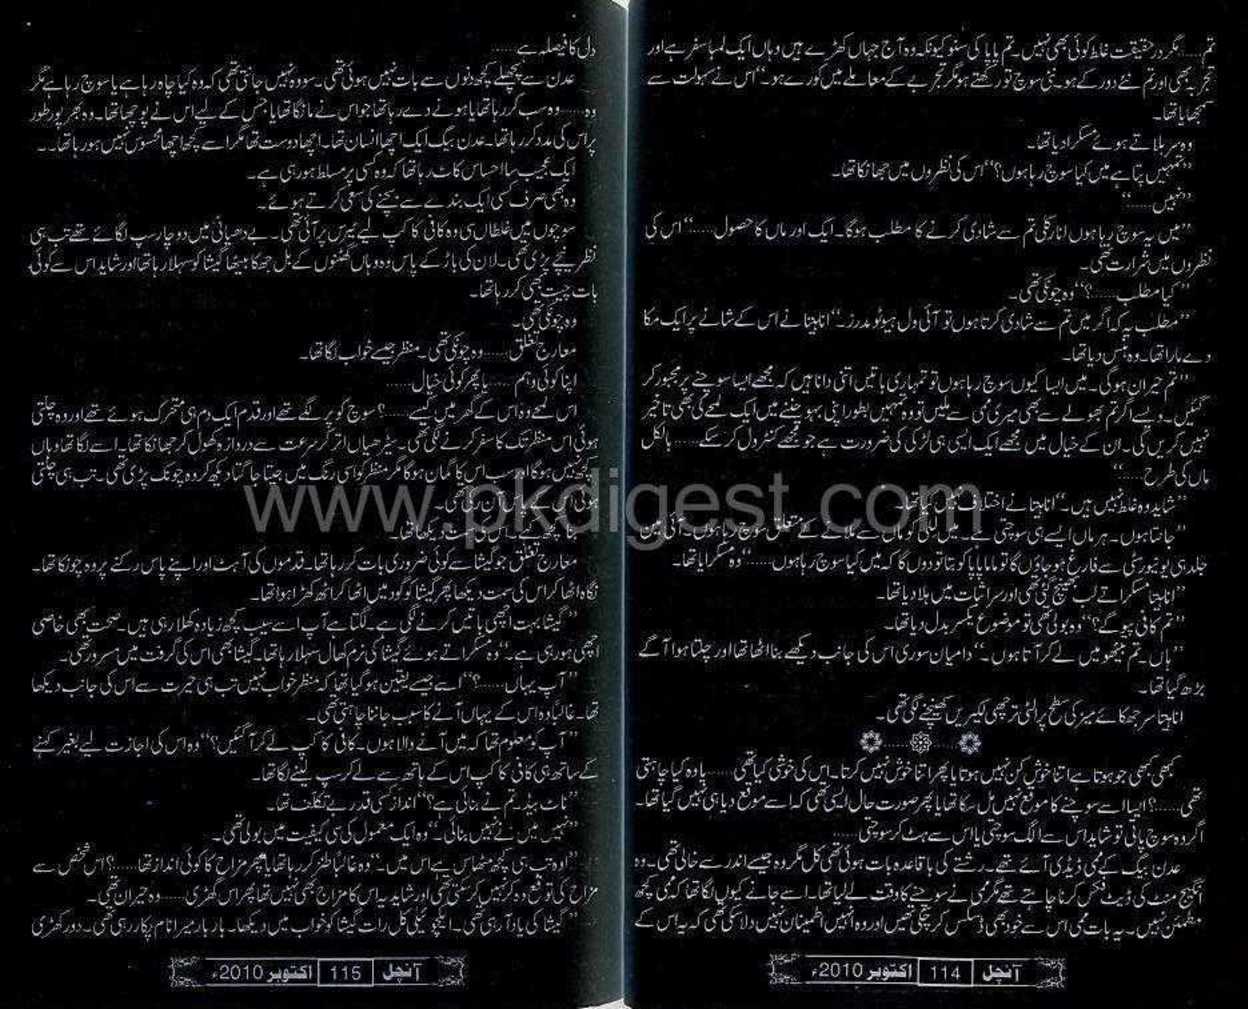 تم...... مگر درحقیقت غلط کوئی بھی نہیں۔ تم پاپا کی سنو کیونکہ وہ آج جہاں کھڑے ہیں وہاں ایک لمبا سفر ہے اور
تجربہ بھی اور تم نئے دور کے ہو۔ نئی سوچ تو رکھتے ہو مگر تجربے کے معاملے میں کورے ہو۔“ اس نے سہولت سے
سمجھایا تھا۔
وہ سر ہلاتے ہوئے مسکرا دیا تھا۔
”تمہیں پتا ہے میں کیا سوچ رہا ہوں؟“ اس کی نظروں میں جھانکا تھا۔
”نہیں......“
”میں یہ سوچ رہا ہوں انارکلی تم سے شادی کرنے کا مطلب ہوگا۔ ایک اور ماں کا حصول......“ اس کی
نظروں میں شرارت تھی۔
”کیا مطلب......؟“ وہ چونکی تھی۔
”مطلب یہ کہ اگر میں تم سے شادی کرتا ہوں تو آئی ول ہیو ٹو مدرز۔“ انابیتا نے اس کے شانے پر ایک مکا
دے مارا تھا۔ وہ ہنس دیا تھا۔
”تم حیران ہوگی۔ میں ایسا کیوں سوچ رہا ہوں تو تمہاری باتیں اتنی دانا ہیں کہ مجھے ایسا سوچنے پر مجبور کر
گئیں۔ ویسے اگر تم بھولے سے بھی میری ممی سے ملیں تو وہ تمہیں بطور اپنی بہو چننے میں ایک لمحے کی بھی تاخیر
نہیں کریں گی۔ ان کے خیال میں مجھے ایک ایسی ہی لڑکی کی ضرورت ہے جو مجھے کنٹرول کر سکے...... بالکل
ماں کی طرح......“
”شاید وہ غلط نہیں ہیں۔“ انابیتا نے اختلاف نہیں کیا تھا۔
”جانتا ہوں۔ ہر ماں ایسے ہی سوچتی ہے۔ میں کو ماں سے ملانے کے متعلق سوچ رہا ہوں۔ آئی مین
جلد ہی یونیورسٹی سے فارغ ہو جاؤں گا تو ماما پاپا کو بتا تو دوں گا کہ میں کیا سوچ رہا ہوں......“ وہ مسکرایا تھا۔
انابیتا مسکراتے لب بھینچ گئی تھی اور سر اثبات میں ہلا دیا تھا۔
”تم کافی پیو گے؟“ وہ بولی تھی تو موضوع یکسر بدل دیا تھا۔
”ہاں۔ تم بیٹھو میں لے کر آتا ہوں۔“ دامیان سوری اس کی جانب دیکھے بنا اٹھا تھا اور چلتا ہوا آگے
بڑھ گیا تھا۔
انابیتا سر جھکائے میز کی سطح پر الٹی ترچھی لکیریں کھینچنے لگی تھی۔
کبھی کبھی جو ہوتا ہے اتنا خوش کن نہیں ہوتا یا پھر اتنا خوش نہیں کرتا۔ اس کی خوشی کیا تھی...... یا وہ کیا چاہتی
تھی......؟ ایسا اسے سوچنے کا موقع نہیں مل سکا تھا یا پھر صورت حال ایسی تھی کہ اسے موقع دیا ہی نہیں گیا تھا۔
اگر وہ سوچ پاتی تو شاید اس سے الگ سوچتی یا اس سے ہٹ کر سوچتی......
عدن بیگ کے ممی ڈیڈی آئے تھے۔ رشتے کی باقاعدہ بات ہوئی تھی کل مگر وہ جیسے اندر سے خالی تھی۔ وہ
انگیج منٹ کی ڈیٹ فکس کرنا چاہتے تھے مگر ممی نے سوچنے کا وقت لے لیا تھا۔ اسے جانے کیوں لگا تھا کہ ممی کچھ
مطمئن نہیں۔ یہ بات ممی اس سے خود بھی ڈسکس کر چکی تھیں اور وہ انہیں اطمینان نہیں دلا سکی تھی کہ یہ اس کے
آنچل 114 اکتوبر 2010ء
دل کا فیصلہ ہے......
عدن سے پچھلے کچھ دنوں سے بات نہیں ہوئی تھی۔ سو وہ نہیں جانتی تھی کہ وہ کیا چاہ رہا ہے یا سوچ رہا ہے مگر
وہ...... وہ سب کر رہا تھا یا ہونے دے رہا تھا جو اس نے مانگا تھا یا جس کے لیے اس نے پوچھا تھا۔ وہ بھرپور طور
پر اس کی مدد کر رہا تھا۔ عدن بیگ ایک اچھا انسان تھا۔ اچھا دوست تھا مگر اسے کچھ اچھا محسوس نہیں ہو رہا تھا۔۔
ایک عجیب سا احساس کاٹ رہا تھا کہ وہ کسی پر مسلط ہو رہی ہے۔
وہ بھی صرف کسی ایک بندے سے بچنے کی سعی کرتے ہوئے۔
سوچوں میں غلطاں سی وہ کافی کا کپ لیے ٹیرس پر آئی تھی۔ بے دھیانی میں دو چار سپ لگائے تھے تب ہی
نظر نیچے پڑی تھی۔ لان کی باڑ کے پاس وہ وہاں گھٹنوں کے بل جھکا بیٹھا گیشا کو سہلا رہا تھا اور شاید اس سے کوئی
بات چیت بھی کر رہا تھا۔
وہ چونکی تھی۔
معارج تغلق...... وہ چونکی تھی۔ منظر جیسے خواب لگا تھا۔
اپنا کوئی وہم...... یا پھر کوئی خیال......
اس لمحے وہ اس کے گھر میں کیسے......؟ سوچ کو پر لگے تھے اور قدم ایک دم ہی متحرک ہوئے تھے اور وہ چلتی
ہوئی اس منظر تک کا سفر کرنے لگی تھی۔ سیڑھیاں اتر کر سرعت سے دروازہ کھول کر جھانکا تھا۔ اسے لگا تھا وہاں
کچھ نہیں ہوگا اور سب اس کا گمان ہوگا مگر منظر کو اسی رنگ میں جیتا جاگتا دیکھ کر وہ چونک پڑی تھی۔ تب ہی چلتی
ہوئی اس کے
معارج تغلق جو گیشا سے کوئی ضروری بات کر رہا تھا۔ قدموں کی آہٹ اور اپنے پاس رکنے پر وہ چونکا تھا۔
نگاہ اٹھا کر اس کی سمت دیکھا پھر گیشا کو گود میں اٹھا کر اٹھ کھڑا ہوا تھا۔
”گیشا بہت اچھی باتیں کرنے لگی ہے۔ لگتا ہے آپ اسے سیب کچھ زیادہ کھلا رہی ہیں۔ صحت بھی خاصی
اچھی ہو رہی ہے۔“ وہ مسکراتے ہوئے گیشا کی نرم کھال سہلا رہا تھا۔ گیشا بھی اس کی گرفت میں مسرور تھی۔
”آپ یہاں......؟“ اسے جیسے یقین ہو گیا تھا کہ منظر خواب نہیں تب ہی حیرت سے اس کی جانب دیکھا
تھا۔ غالباً وہ اس کے یہاں آنے کا سبب جاننا چاہتی تھی۔
”آپ کو معلوم تھا کہ میں آنے والا ہوں۔ کافی کا کپ لے کر آ گئیں؟“ وہ اس کی اجازت لیے بغیر کہنے
کے ساتھ ہی کافی کا کپ اس کے ہاتھ سے لے کر سپ لینے لگا تھا۔
”ناٹ بیڈ۔ تم نے بنائی ہے؟“ انداز کسی قدر بے تکلفت تھا۔
”نہیں میں نے نہیں بنائی۔“ وہ ایک معمول کی سی کیفیت میں بولی تھی۔
”اوہ تب ہی کچھ مٹھاس ہے اس میں۔“ وہ غالباً طنز کر رہا تھا یا پھر مزاح کا کوئی انداز تھا......؟ اس شخص سے
مزاح کی توقع وہ کر نہیں کر سکتی تھی اور شاید یہ اس کا مزاج بھی نہیں تھا پھر اس گھڑی...... وہ حیران تھی۔
”گیشا کی یاد آ رہی تھی۔ ایکچوئیلی کل رات گیشا کو خواب میں دیکھا۔ بار بار میرا نام پکار رہی تھی۔ دور کھڑی
آنچل 115 اکتوبر 2010ء
www.pkdigest.com